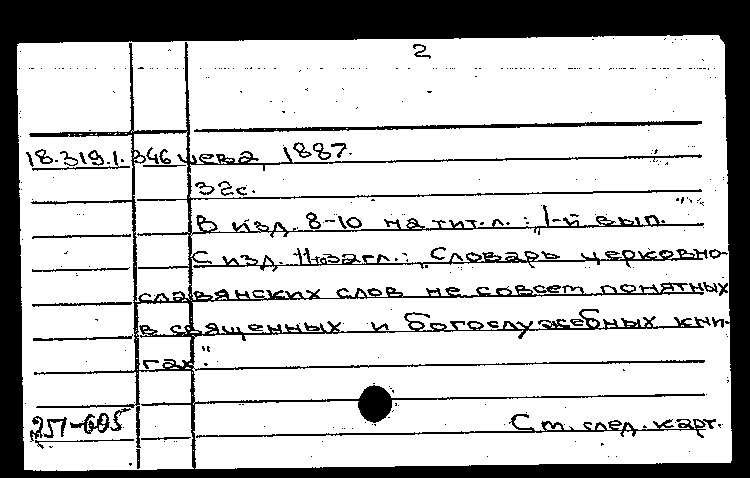 2
18.319.1.346 щева, 1887.
32с.
В изд. 8-10 на тит. л.: „1-й вып."
С изд. 11го загл.: „Словарь церковно-
славянских слов не совсем понятных
в священных и богослужебных кни-
гах."
251-605
См. след. карт.